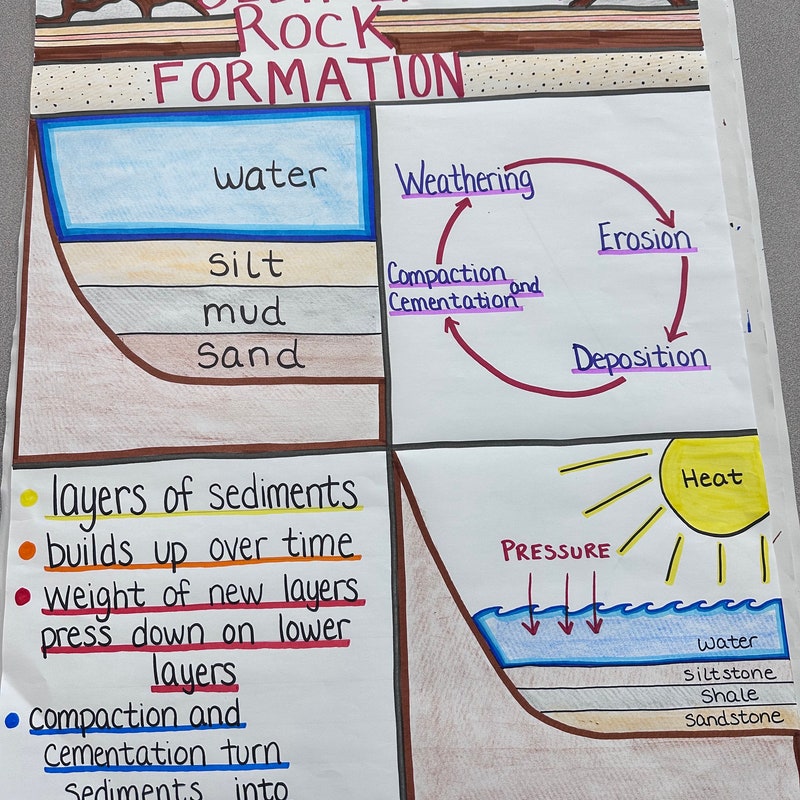 ROCK
FORMATION
water
silt
mud
sand
Weathering
Erosion
Deposition
Compaction and
Cementation
layers of sediments
builds up over time
weight of new layers
press down on lower
layers
compaction and
cementation turn
sediments into
Heat
PRESSURE
water
siltstone
shale
sandstone